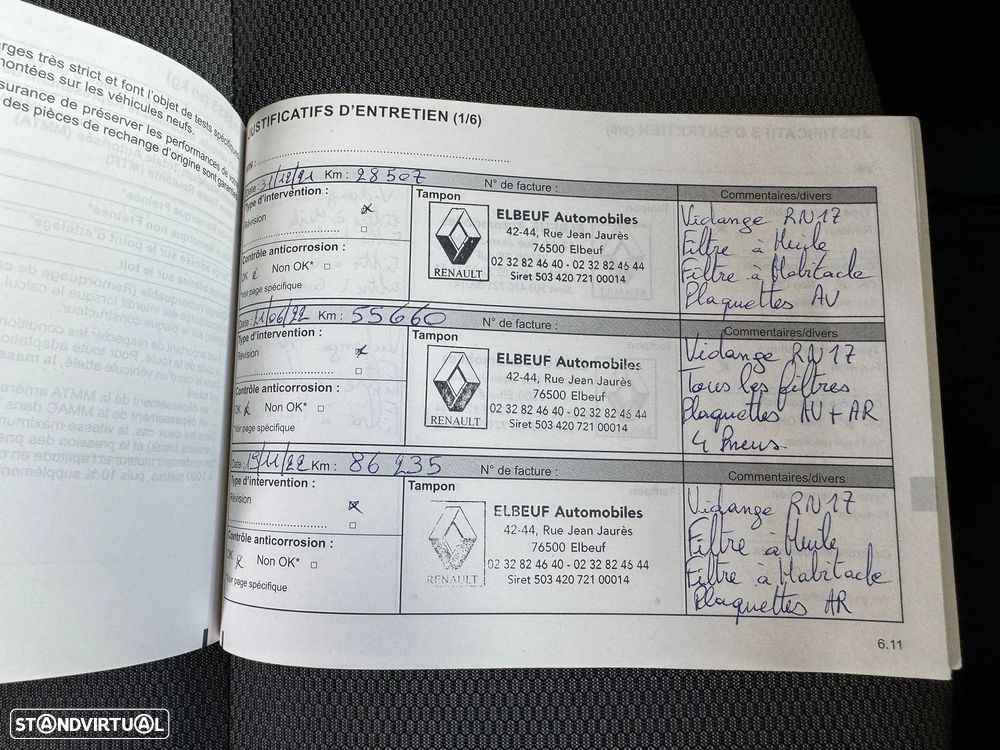 arges très strict et font l'objet de tests spécifiq
montées sur les véhicules neufs.
surance de préserver les performances de votre
des pièces de rechange d'origine sont garanties
JUSTIFICATIFS D'ENTRETIEN (1/6)
VIN :
Date : 31/12/21 Km : 28507 N° de facture : Commentaires/divers
Type d'intervention :
Révision
Contrôle anticorrosion :
OK Non OK*
*Voir page spécifique
Tampon
RENAULT
ELBEUF Automobiles
42-44, Rue Jean Jaurès
76500 Elbeuf
02 32 82 46 40 - 02 32 82 46 44
Siret 503 420 721 00014
Vidange RN17
Filtre à Huile
Filtre à Habitacle
Plaquettes AV
Date : 21/06/22 Km : 55660 N° de facture : Commentaires/divers
Type d'intervention :
Révision
Contrôle anticorrosion :
OK Non OK*
*Voir page spécifique
Tampon
RENAULT
ELBEUF Automobiles
42-44, Rue Jean Jaurès
76500 Elbeuf
02 32 82 46 40 - 02 32 82 46 44
Siret 503 420 721 00014
Vidange RN17
Tous les filtres
Plaquettes AV + AR
4 Pneus.
Date : 19/11/22 Km : 86 235 N° de facture : Commentaires/divers
Type d'intervention :
Révision
Contrôle anticorrosion :
OK Non OK*
*Voir page spécifique
Tampon
RENAULT
ELBEUF Automobiles
42-44, Rue Jean Jaurès
76500 Elbeuf
02 32 82 46 40 - 02 32 82 46 44
Siret 503 420 721 00014
Vidange RN17
Filtre à Huile
Filtre à Habitacle
Plaquettes AR
6.11
STANDVIRTUAL